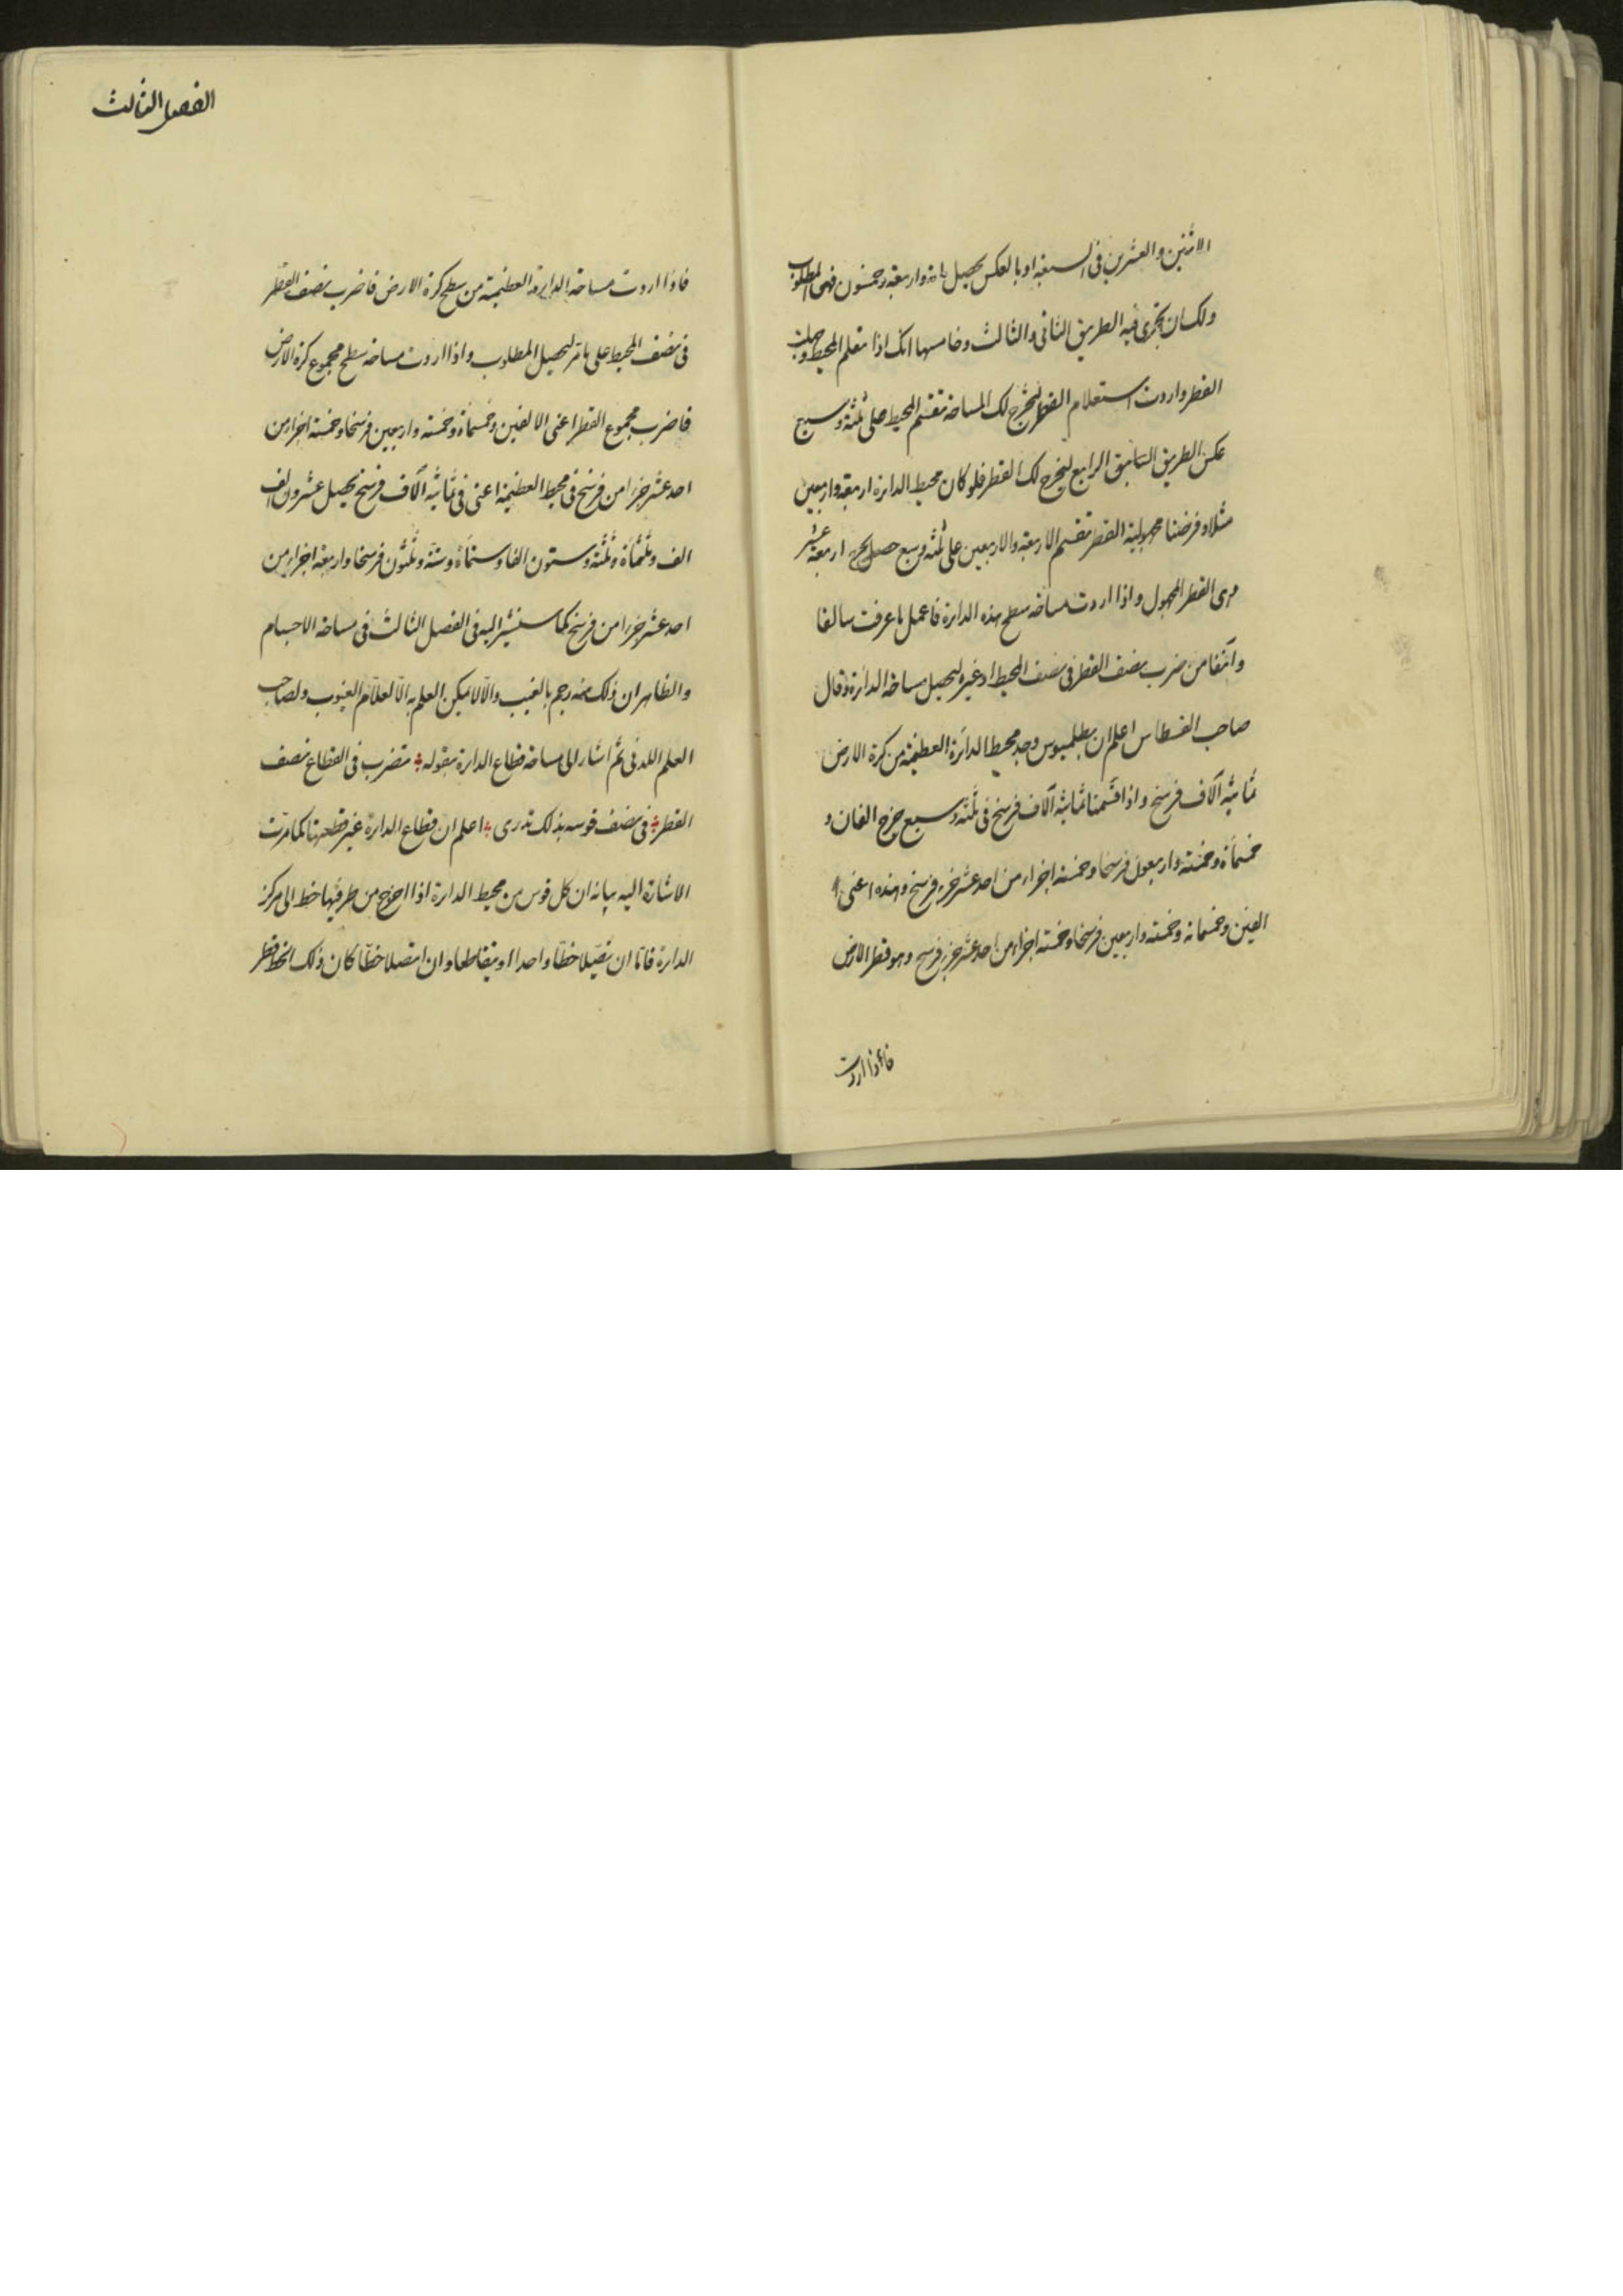 الاثنين والعشرين فى السبعة او بالعكس يحصل مائة واربعة وخمسون فهى المطلوب
ولك ان تجرى فيه الطريق الثانى والثالث وخامسها انك اذا تعلم المحيط وجهلت
القطر واردت استعلام القطر ليخرج لك المساحة تقسم المحيط على ثلثة وسبع
عكس الطريق السابق الرابع ليخرج لك القطر فلو كان محيط الدائرة اربعة واربعين
مثلا وفرضنا مجهولية القطر تقسم الاربعة والاربعين على ثلثة وسبع حصل اربعة عشر
وهى القطر المجهول واذا اردت مساحة سطح هذه الدائرة فاعمل ما عرفت سالفا
وآنفا من ضرب نصف القطر فى نصف المحيط او غيره ليحصل مساحة الدائرة وقال
صاحب القسطاس اعلم ان بطلميوس وجد محيط الدائرة العظيمة من كرة الارض
ثمانية آلاف فرسخ واذا قسمنا ثمانية آلاف فرسخ فى ثلثة وسبع خرج الفان و
خمسمأة وخمسة واربعون فرسخا وخمسة اجزاء من احد عشر جزء فرسخ وهذه اعنى
الفين وخمسمائة وخمسة واربعين فرسخا وخمسة اجزاء من احد عشر جزء فرسخ وهو قطر الارض
فاذا اردت
الفصل الثالث
فاذا اردت مساحة الدائرة العظيمة من سطح كرة الارض فاضرب نصف القطر
فى نصف المحيط على ما مر ليحصل المطلوب واذا اردت مساحة سطح مجموع كرة الارض
فاضرب مجموع القطر اعنى الالفين وخمسمأة وخمسة واربعين فرسخا وخمسة اجزاء من
احد عشر جزءا من فرسخ فى محيط العظيمة اعنى فى ثمانية آلاف فرسخ يحصل عشرون الف
الف وثلثمأة وثلثة وستون الفا وستمأة وستة وثلثون فرسخا واربعة اجزاء من
احد عشر جزءا من فرسخ كما سنشير اليه فى الفصل الثالث فى مساحة الاجسام
والظاهر ان ذلك منه رجم بالغيب والا لا يمكن العلم به الا لعلام الغيوب ولصاحب
العلم اللدنى ثم اشار الى مساحة قطاع الدائرة بقوله تضرب فى القطاع نصف
القطر فى نصف قوسه بذلك تدرى اعلم ان قطاع الدائرة غير قطعتها كما مرت
الاشارة اليه بيانه ان كل قوس من محيط الدائرة اذا اخرج من طرفيها خط الى مركز
الدائرة فاما ان يتصلا خطا واحدا او يتقاطعا وان اتصلا خطا كان ذلك الخط قطر